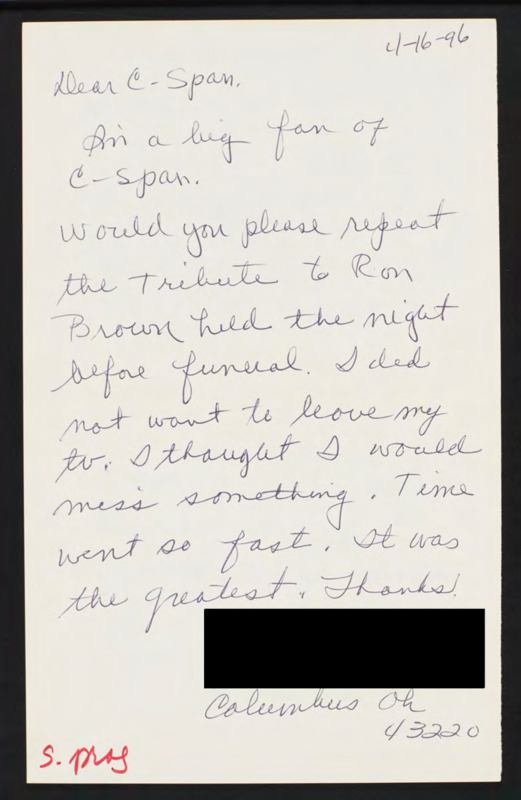 4-16-96
Dear C-Span.
I'm a big fan of
C-Span.
Would you please repeat
the Tribute to Ron
Brown held the night
before funeral. I did
not want to leave my
tv. I thought I would
miss something. Time
went so fast. It was
the greatest. Thanks!
Columbus Oh
43220
S. prog